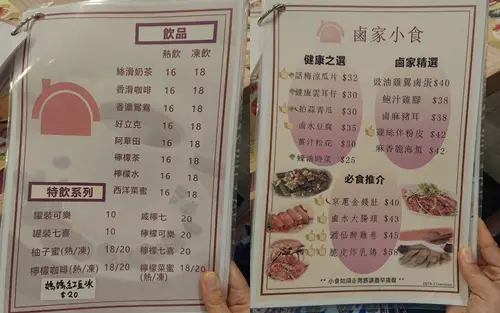 飲品
熱飲 凍飲
絲滑奶茶 16 18
香滑咖啡 16 18
香濃鴛鴦 16 18
好立克 16 18
阿華田 16 18
檸檬茶 16 18
檸檬水 16 18
西洋菜蜜 16 18
特飲系列
罐裝可樂 10
罐裝七喜 10
柚子蜜(熱/凍) 18/20
檸檬咖啡(熱/凍) 18/20
咸檸七 20
檸檬可樂 20
檸檬七喜 20
檸檬菜蜜 18/20
(熱/凍)
媽媽紅豆冰
$20
鹵家小食
健康之選
話梅涼瓜片 $32
健康雲耳仔 $30
拍蒜青瓜 $30
鹵水豆腐 $35
薑汁松花 $30
辣油時菜 $25
鹵家精選
豉油雞翼鹵蛋 $40
鮑汁雞腳 $38
鹵麻豬耳 $38
雞絲伴粉皮 $42
麻香脆海魷 $42
必食推介
京蔥金錢肚 $40
鹵水大腸頭 $43
酒仙醉雞卷 $45
脆皮炸乳鴿 $58